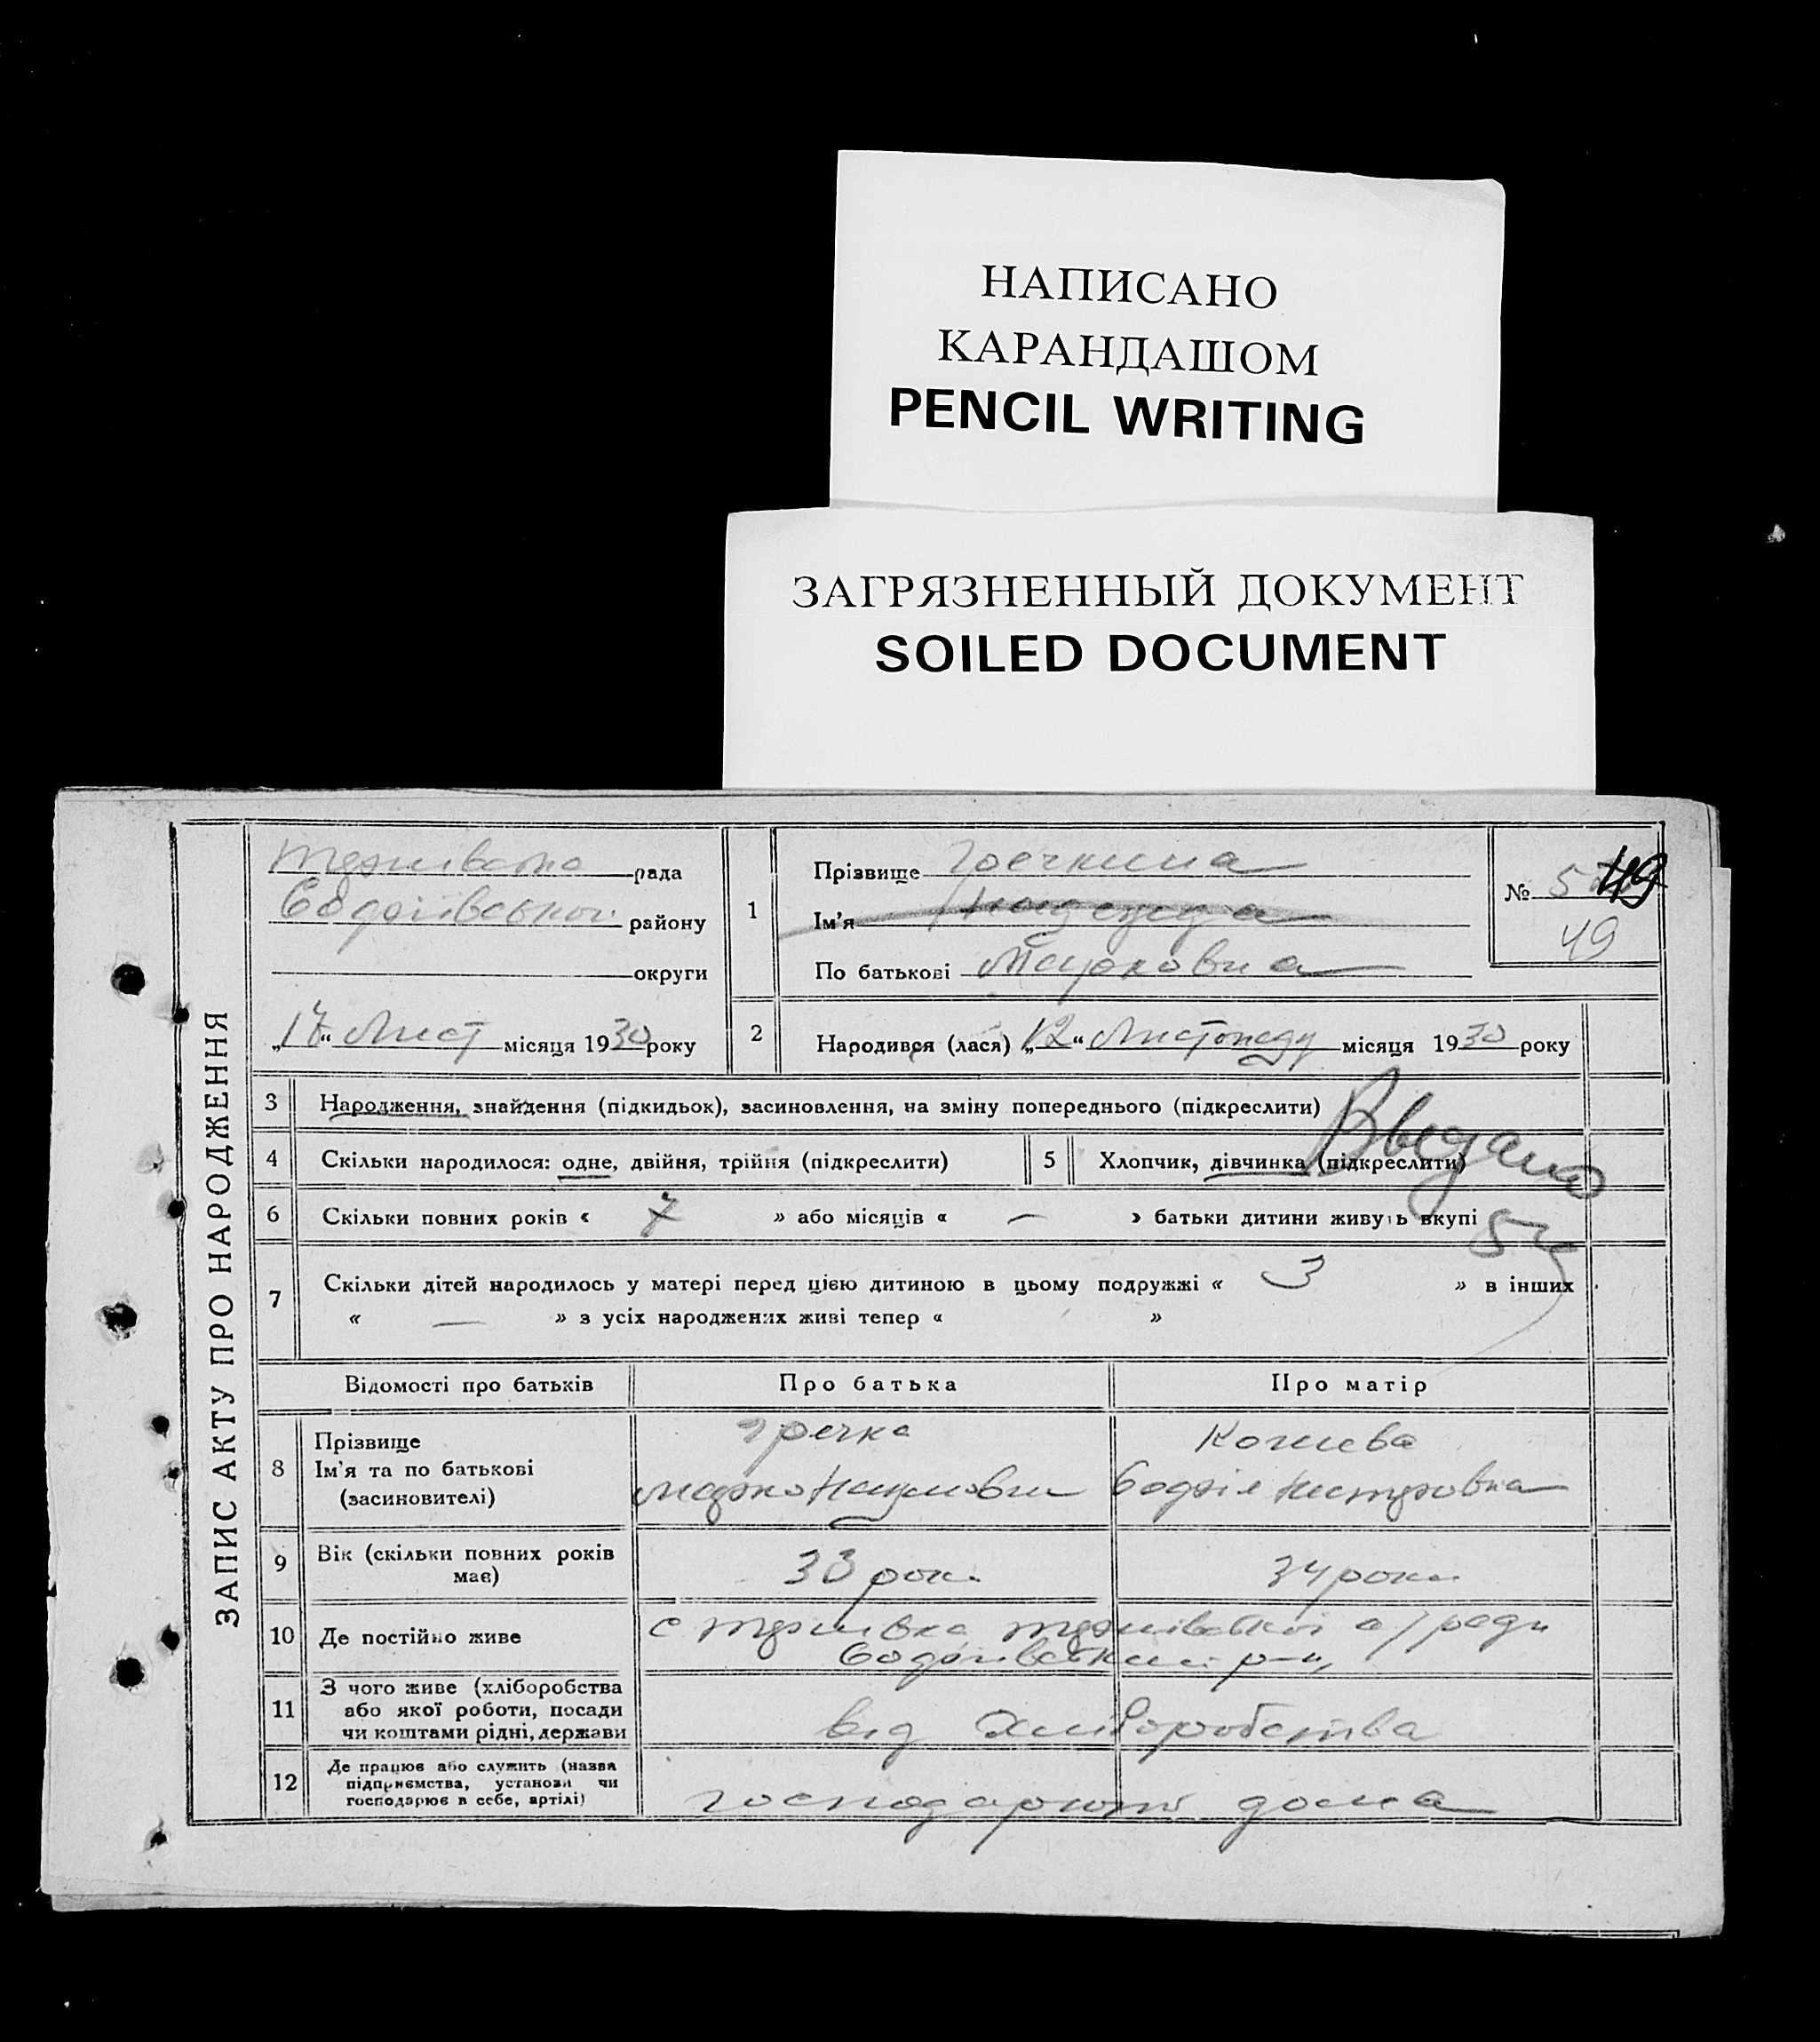 НАПИСАНО
КАРАНДАШОМ
PENCIL WRITING
ЗАГРЯЗНЕННЫЙ ДОКУМЕНТ
SOILED DOCUMENT
ЗАПИС АКТУ ПРО НАРОДЖЕННЯ
рада
району
округи
„17“ Лист місяця 1930 року
1
Прізвище Гречкина
Ім'я Надежда
По батькові Марковна
№ 49
49
2 Народився (лася) „12“ Листопаду місяця 1930 року
3 Народження, знайдення (підкидьок), засиновлення, на зміну попереднього (підкреслити)
4 Скільки народилося: одне, двійня, трійня (підкреслити)
5 Хлопчик, дівчинка (підкреслити)
6 Скільки повних років « 7 » або місяців « — » батьки дитини живуть вкупі
7 Скільки дітей народилось у матері перед цією дитиною в цьому подружжі « 3 » в інших
« — » з усіх народжених живі тепер « »
Відомості про батьків Про батька Про матір
8 Прізвище
Ім'я та по батькові
(засиновителі)
Гречка
Марко Наумович
9 Вік (скільки повних років
має)
33 роки
34 роки
10 Де постійно живе
11 З чого живе (хліборобства
або якої роботи, посади
чи коштами рідні, держави
від Хліборобства
12 Де працює або служить (назва
підприємства, установи чи
господарює в себе, артілі)
господарюют дома